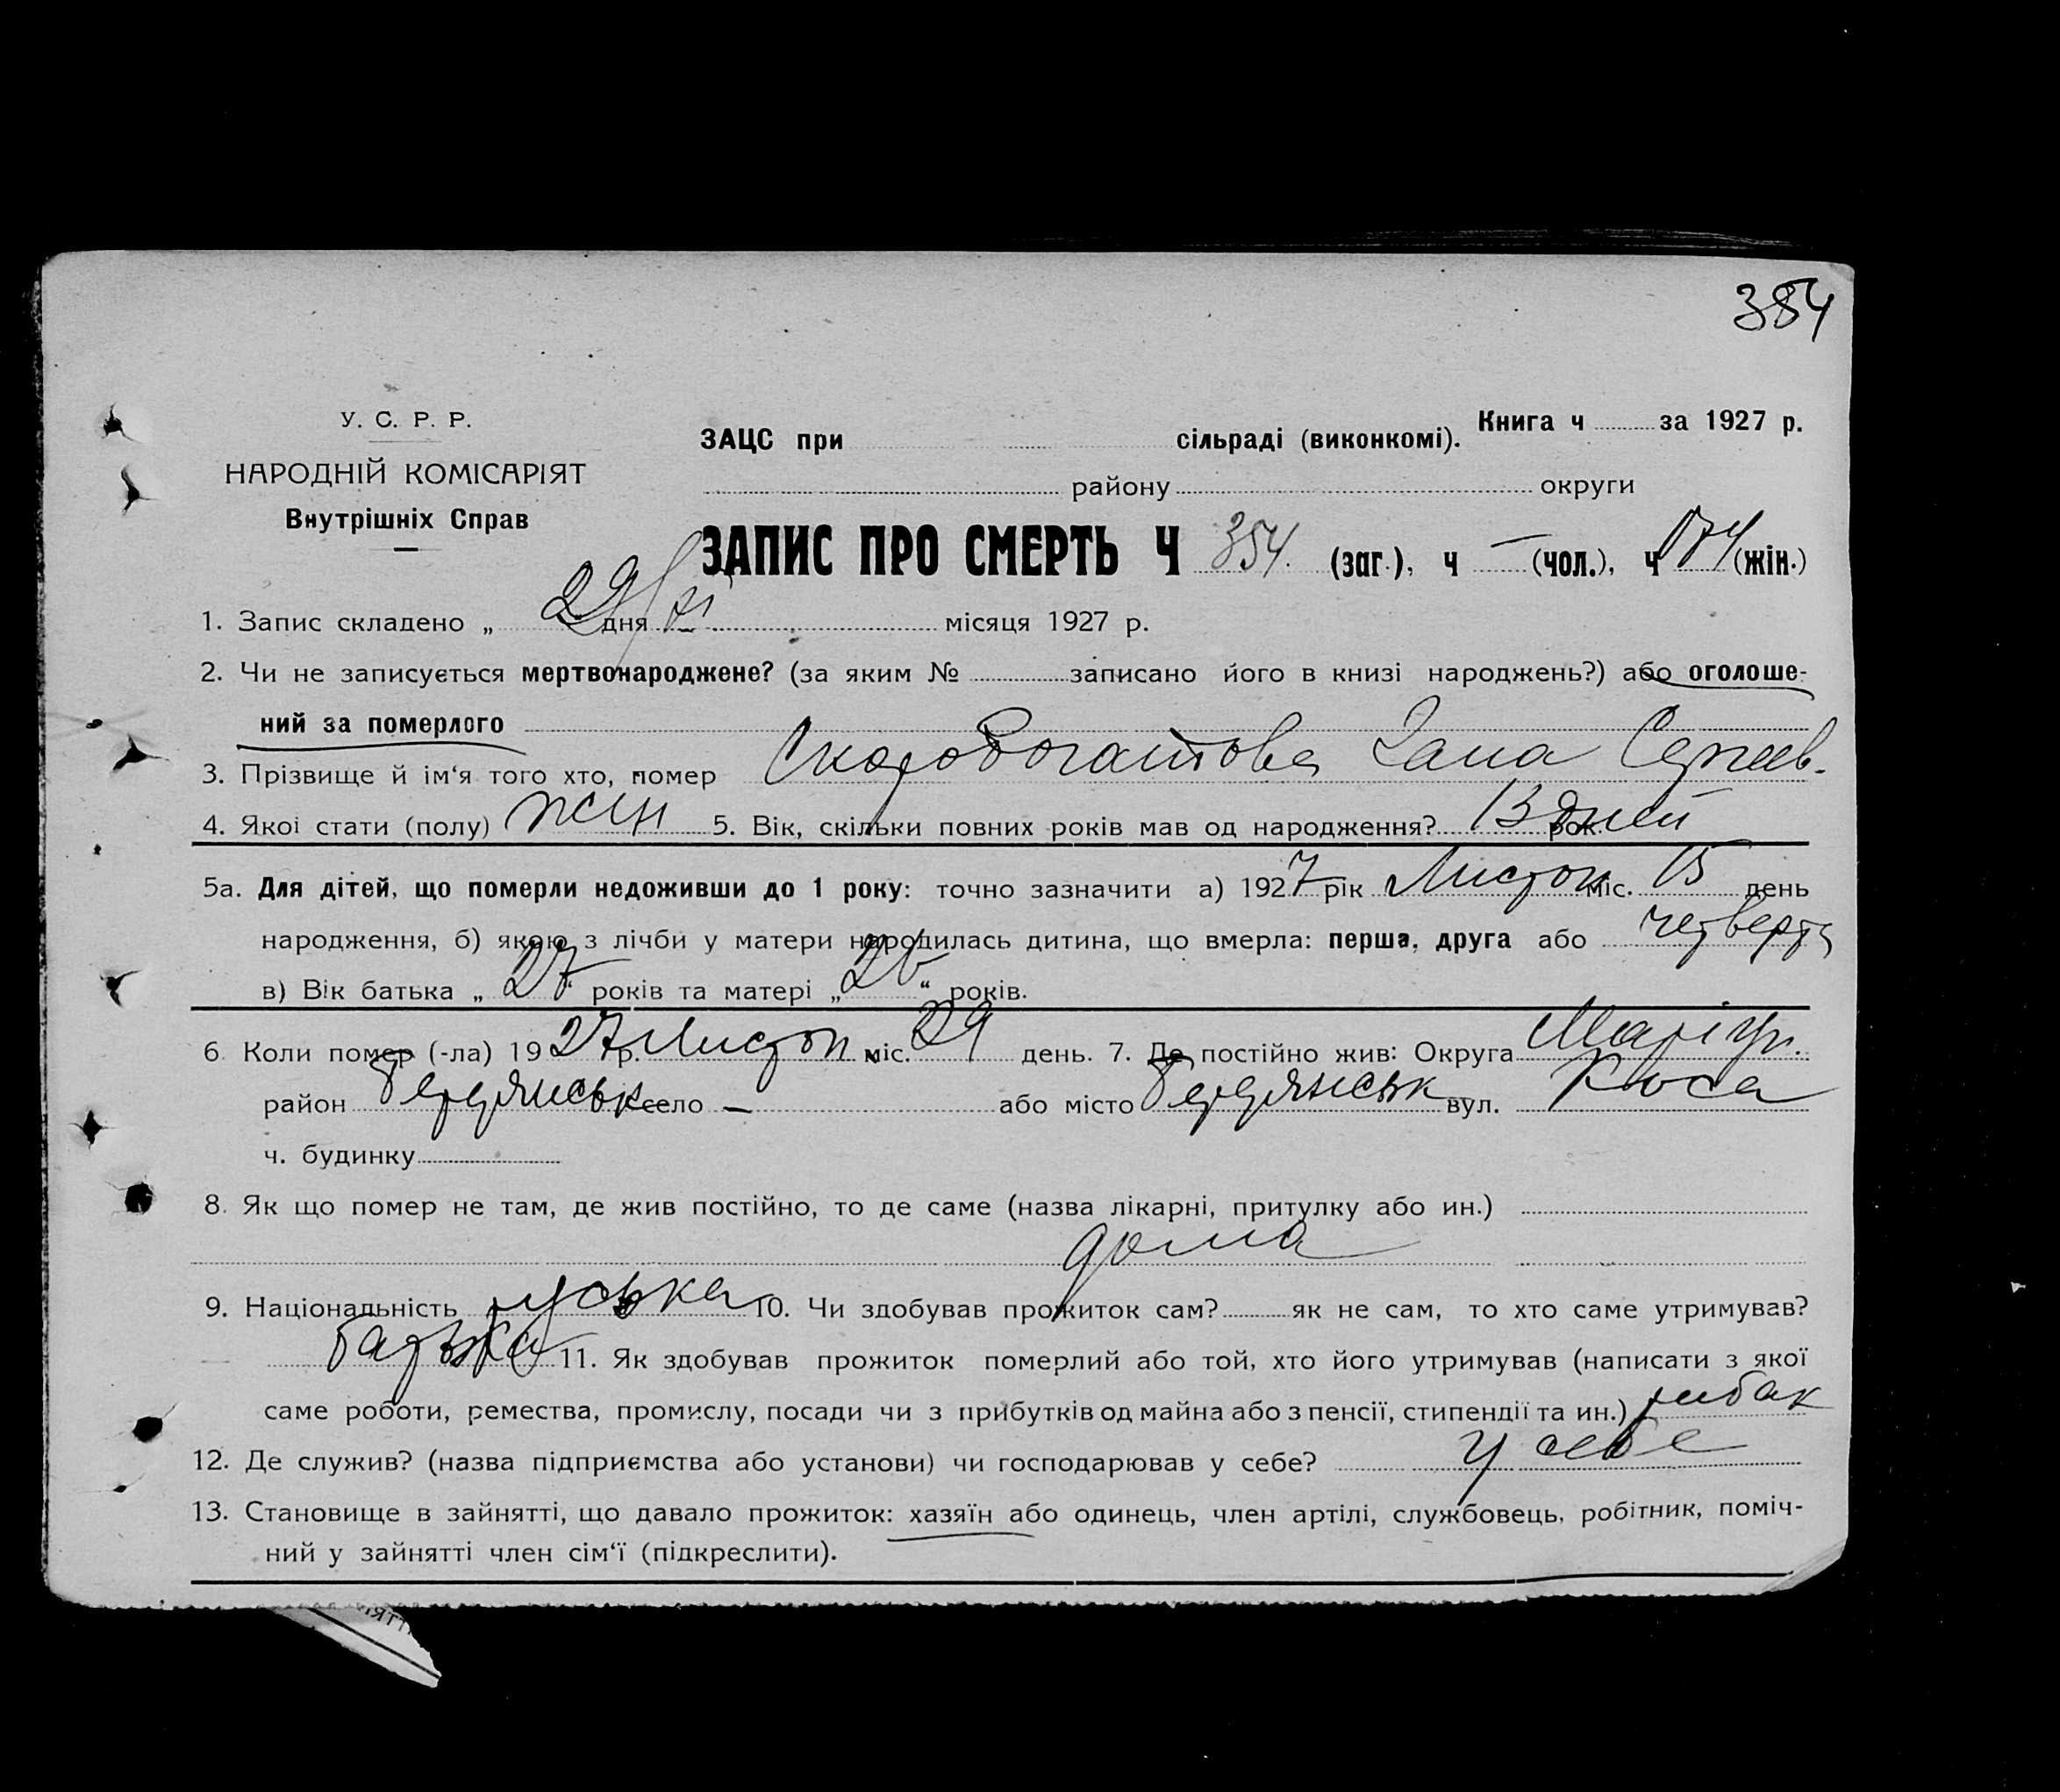 384
У. С. Р. Р.
НАРОДНІЙ КОМІСАРІЯТ
Внутрішніх Справ
Книга ч за 1927 р.
ЗАЦС при сільраді (виконкомі).
району округи
ЗАПИС ПРО СМЕРТЬ Ч 354. (заг.), ч — (чол.), ч 174 (жін.)
1. Запис складено „ 29/XI дня місяця 1927 р.
2. Чи не записується мертвонароджене? (за яким № записано його в книзі народжень?) або оголоше-
ний за померлого
3. Прізвище й ім‘я того хто, помер Скоробогатова Сергеев.
4. Якої стати (полу) жін 5. Вік, скільки повних років мав од народження? 13 дней рок.
5а. Для дітей, що померли недоживши до 1 року: точно зазначити а) 1927 рік Листоп міс. 15 день
народження, б) якою з лічби у матери народилась дитина, що вмерла: перша, друга або четверта
в) Вік батька „ 27 “ років та матері „ 26 “ років.
6. Коли помер (-ла) 1927 р. Листоп міс. 29 день. 7. Де постійно жив: Округа Маріуп.
район Бердянськ село — або місто Бердянськ вул. Коса
ч. будинку
8. Як що помер не там, де жив постійно, то де саме (назва лікарні, притулку або ин.)
дома
9. Національність руська 10. Чи здобував прожиток сам? як не сам, то хто саме утримував?
батько 11. Як здобував прожиток померлий або той, хто його утримував (написати з якої
саме роботи, ремества, промислу, посади чи з прибутків од майна або з пенсії, стипендії та ин.) рибак
12. Де служив? (назва підприємства або установи) чи господарював у себе? у себе
13. Становище в зайнятті, що давало прожиток: хазяїн або одинець, член артілі, службовець, робітник, поміч-
ний у зайнятті член сім‘ї (підкреслити).